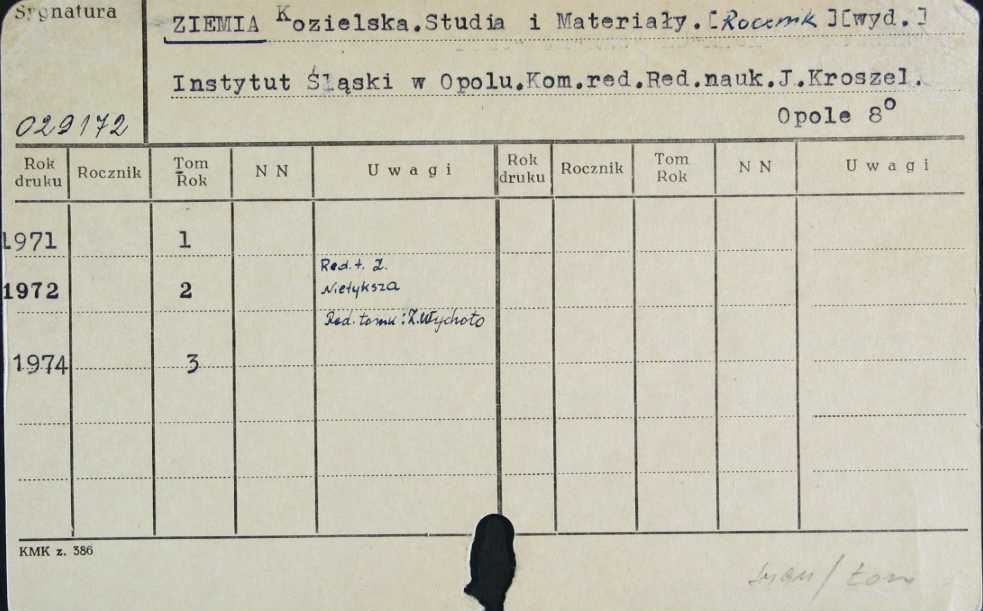 Sygnatura
ZIEMIA Kozielska.Studia i Materiały.[Rocznik][wyd.]
Instytut Śląski w Opolu.Kom.red.Red.nauk.J.Kroszel.
029172
Opole 8°
Rok druku Rocznik Tom Rok N N Uwagi Rok druku Rocznik Tom Rok N N Uwagi
1971 1
Red.t. Z.
1972 2 Nietyksza
Red. tomu: Z. Wychoło
1974 3
KMK z. 386